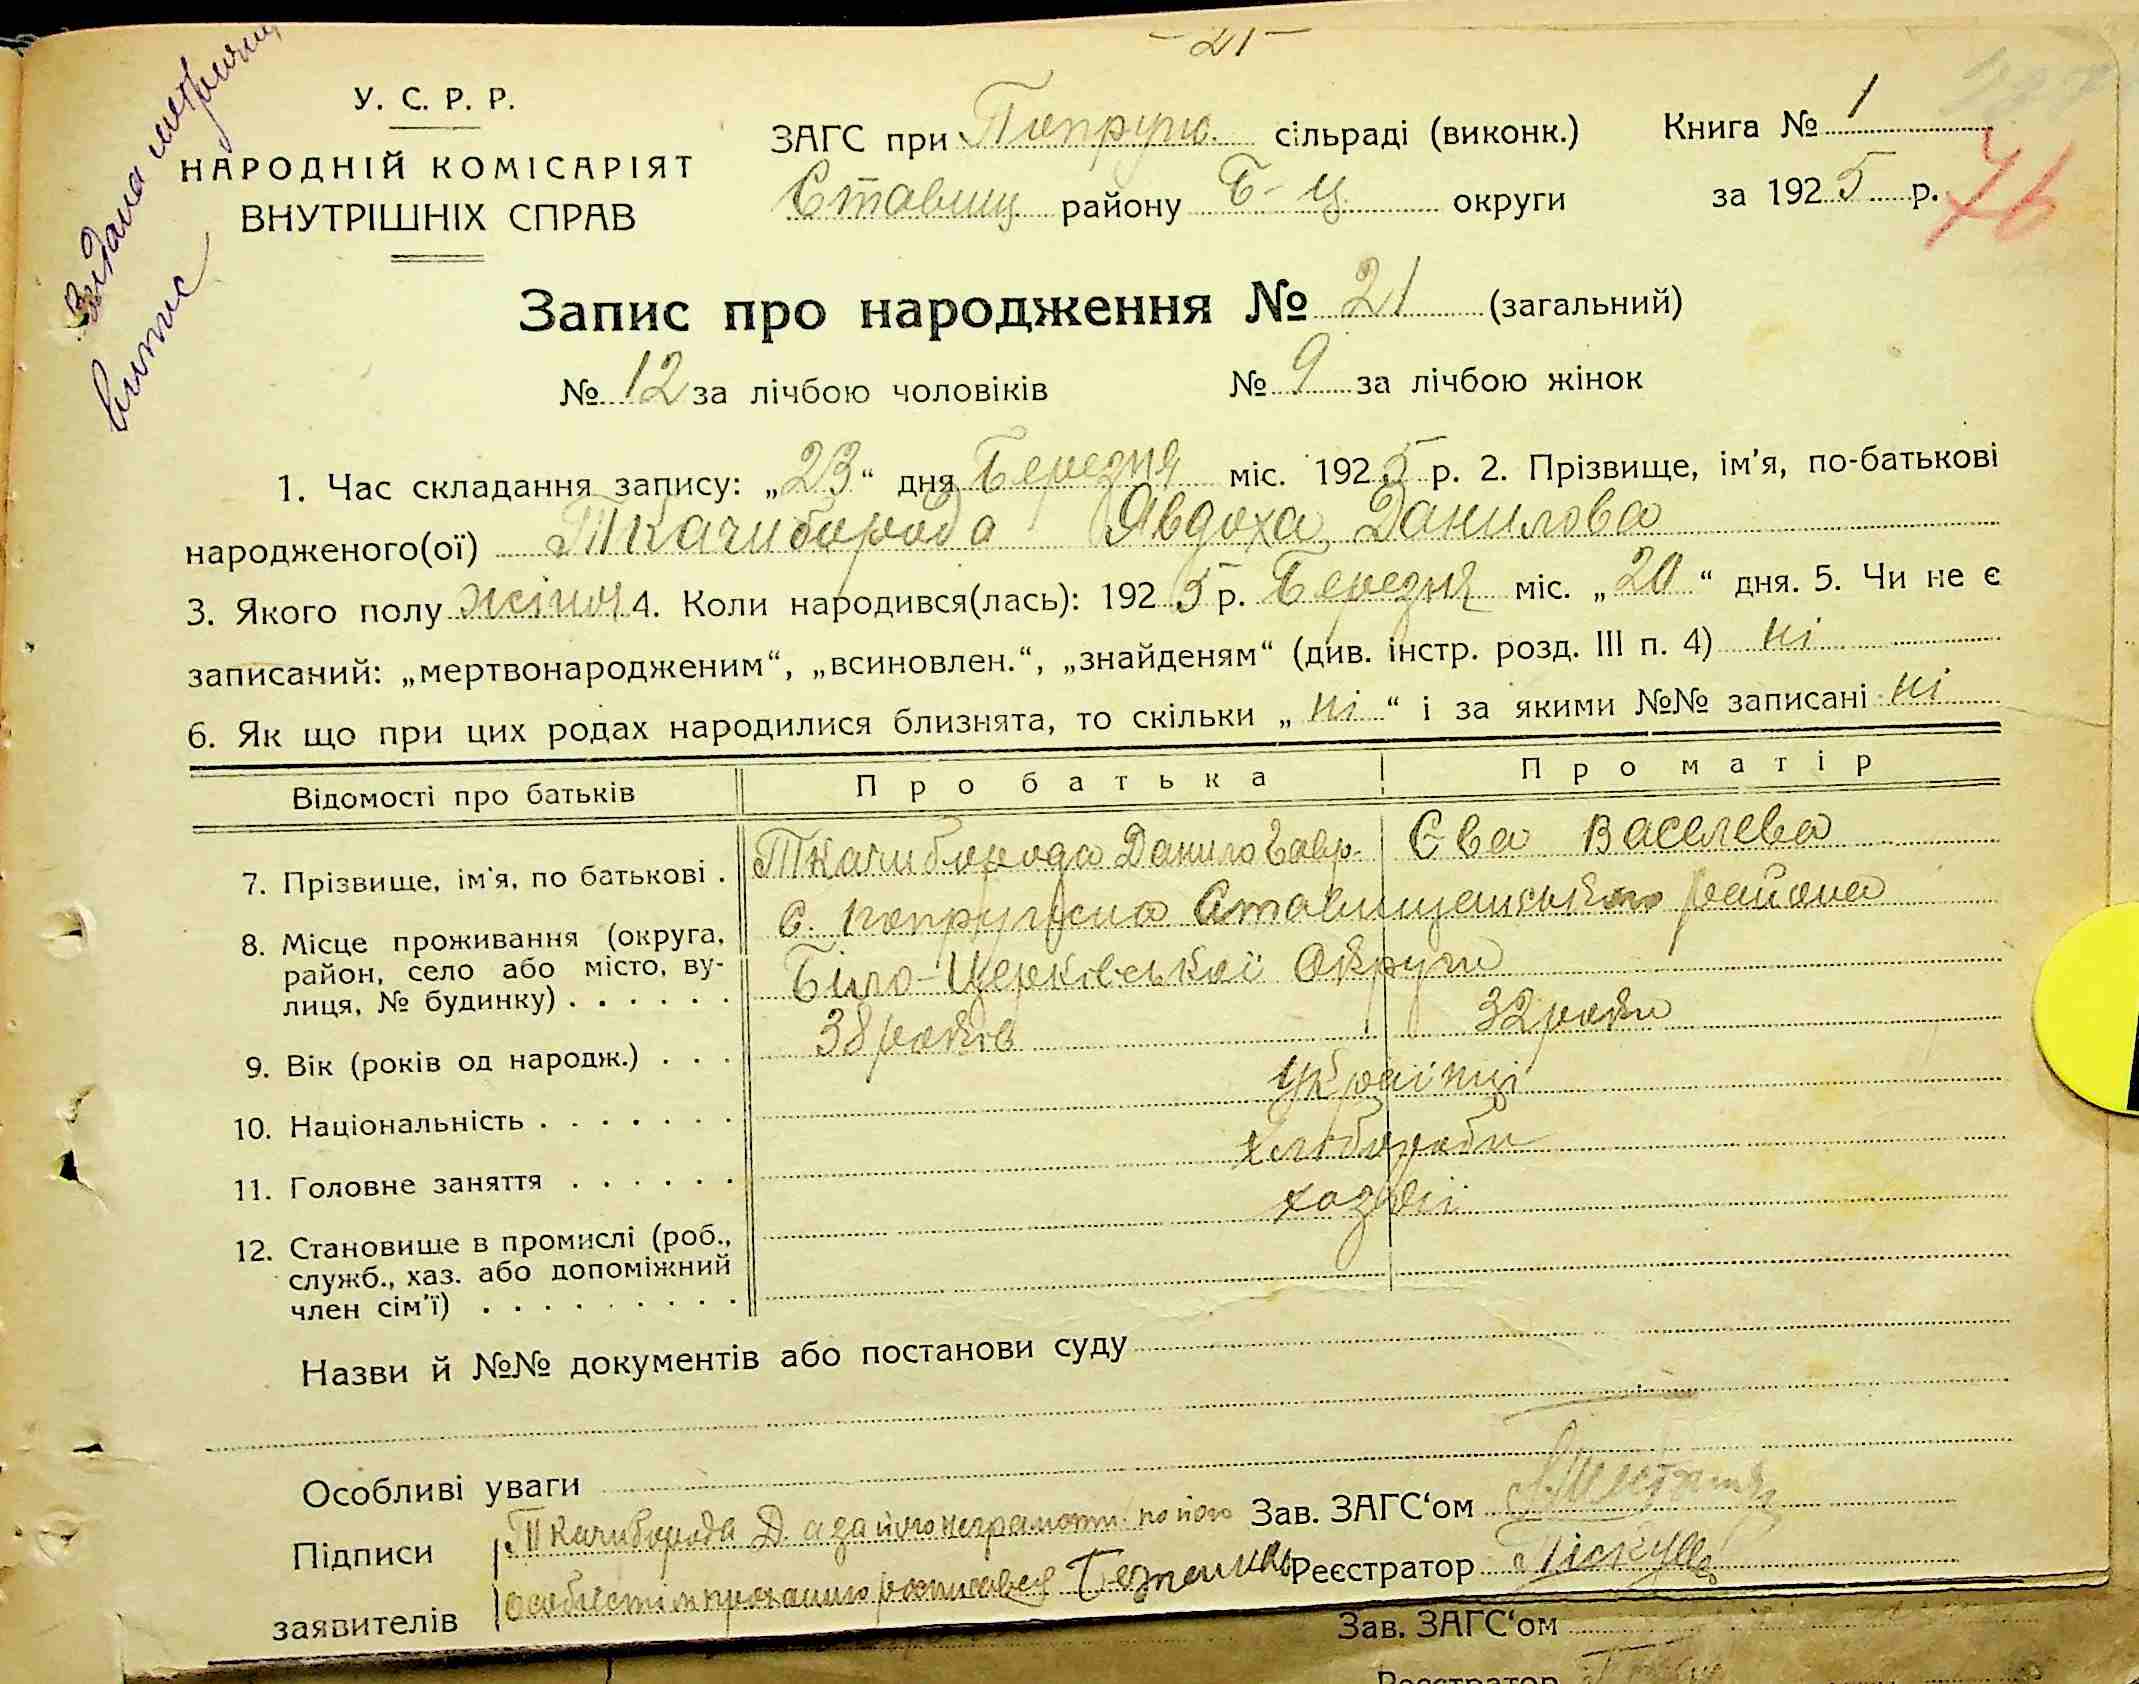 - 21 -
Видана метричн
випис
У. С. Р. Р.
НАРОДНІЙ КОМІСАРІЯТ
ВНУТРІШНІХ СПРАВ
ЗАГС при Попруж. сільраді (виконк.)
Ставищ. району Б-Ц. округи
Книга № 1
за 1925 р.
76
Запис про народження № 21 (загальний)
№ 12 за лічбою чоловіків № 9 за лічбою жінок
1. Час складання запису: „23“ дня Березня міс. 1925 р. 2. Прізвище, ім'я, по-батькові
народженого(ої) Ткачиборода Явдоха Данилова
3. Якого полу жіноч 4. Коли народився(лась): 1925 р. Березня міс. „20“ дня. 5. Чи не є
записаний: „мертвонародженим“, „всиновлен.“, „знайденям“ (див. інстр. розд. III п. 4) ні
6. Як що при цих родах народилися близнята, то скільки „ні“ і за якими №№ записані ні
Відомості про батьків Про батька Про матір
7. Прізвище, ім'я, по батькові . Ткачиборода Данило Гавр. Єва Василева
8. Місце проживання (округа, район, село або місто, вулиця, № будинку) . . . . . . с. Попружна Ставищанського района
Біло-Церківської Округи
9. Вік (років од народж.) . . . 38 років 32 роки
10. Національність . . . . . . . Українці
11. Головне заняття . . . . . . хлібороби
12. Становище в промислі (роб., служб., хаз. або допоміжний член сім'ї) . . . . . . . . . хазяї
Назви й №№ документів або постанови суду
Особливі уваги
Підписи заявителів
Ткачиборода Д. а за його неграмотн. по його
особистім проханню росписався
Зав. ЗАГС'ом
Реєстратор
Зав. ЗАГС'ом
Реєстратор